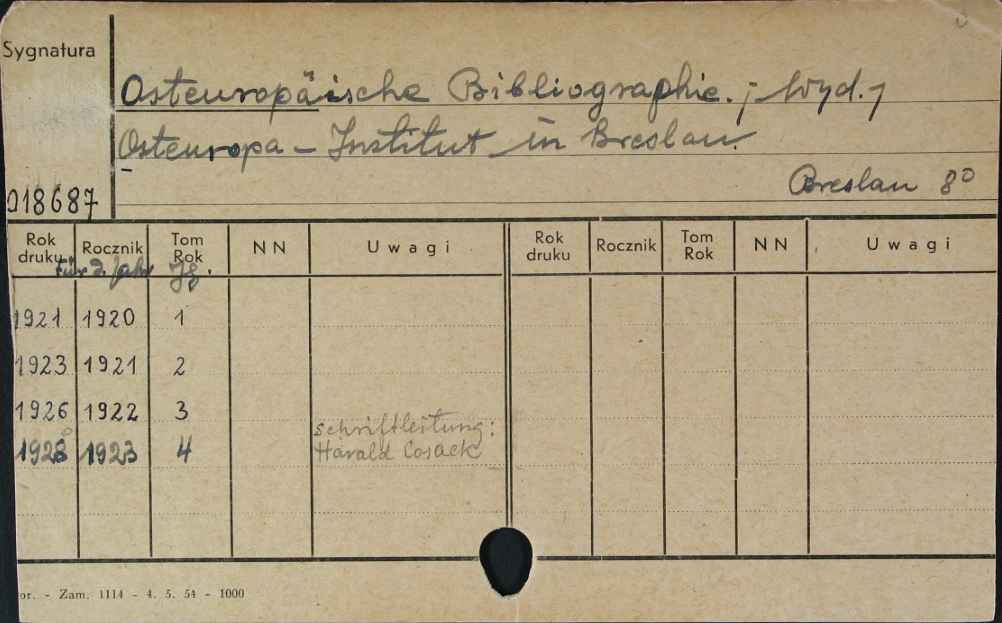 Sygnatura
Osteuropäische Bibliographie. ; Wyd. ;
Osteuropa - Institut in Breslau.
Breslau 8°
018687
Rok druku Rocznik Tom Rok NN Uwagi Rok druku Rocznik Tom Rok NN Uwagi
für d. Jahr Jg.
1921 1920 1
1923 1921 2
1926 1922 3
schriftleitung:
1928 1923 4 Harald Cosack
or. - Zam. 1114 - 4. 5. 54 - 1000